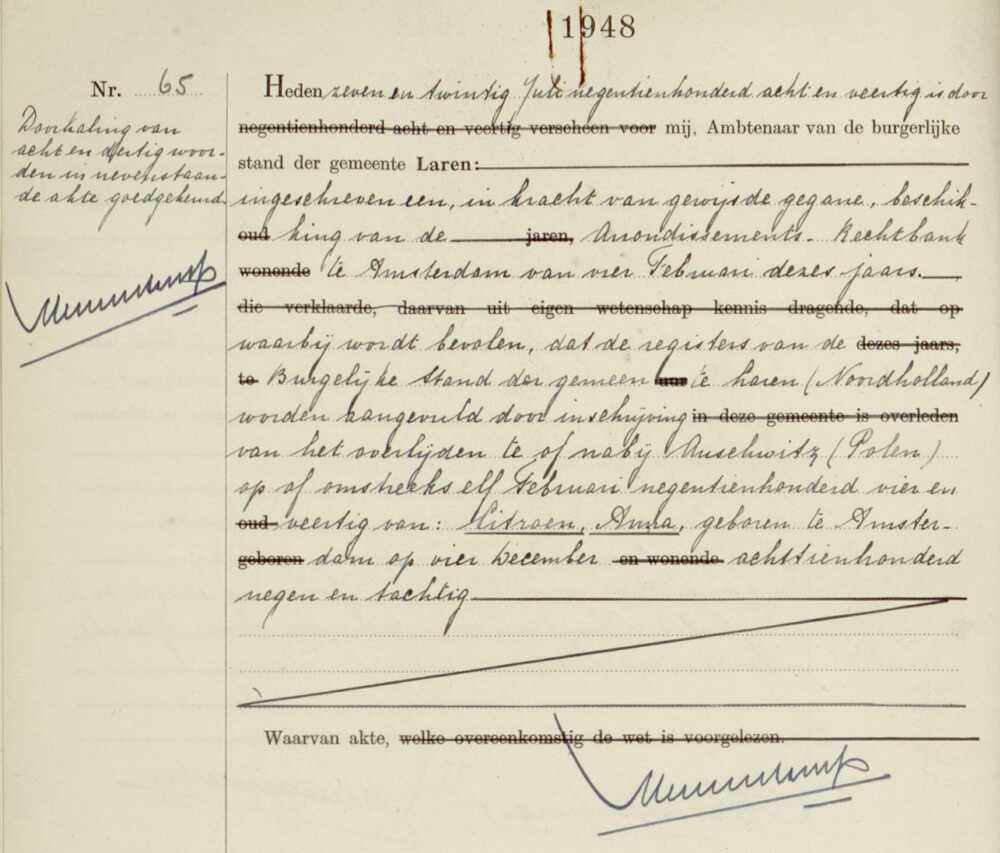 1948
Nr. 65
Doorhaling van
acht en dertig woor-
den in nevenstaan-
de akte goedgekeurd
Heden zeven en twintig Juli negentienhonderd acht en veertig is door
negentienhonderd acht en veertig verscheen voor mij, Ambtenaar van de burgerlijke
stand der gemeente Laren:
ingeschreven een, in kracht van gewijsde gegane, beschik-
oud king van de jaren, Arrondissements- Rechtbank
wonende te Amsterdam van vier Februari dezes jaars.
die verklaarde, daarvan uit eigen wetenschap kennis dragende, dat op
waarbij wordt bevolen, dat de registers van de dezes jaars,
te Burgelijke Stand der gemeen uur te Laren (Noordholland)
worden aangevuld door inschrijving in deze gemeente is overleden
van het overlijden te of nabij Auschwitz (Polen)
op of omstreeks elf Februari negentienhonderd vier en
oud veertig van: Citroen, Anna, geboren te Amster-
geboren dam op vier December en wonende achttienhonderd
negen en tachtig
Waarvan akte, welke overeenkomstig de wet is voorgelezen.